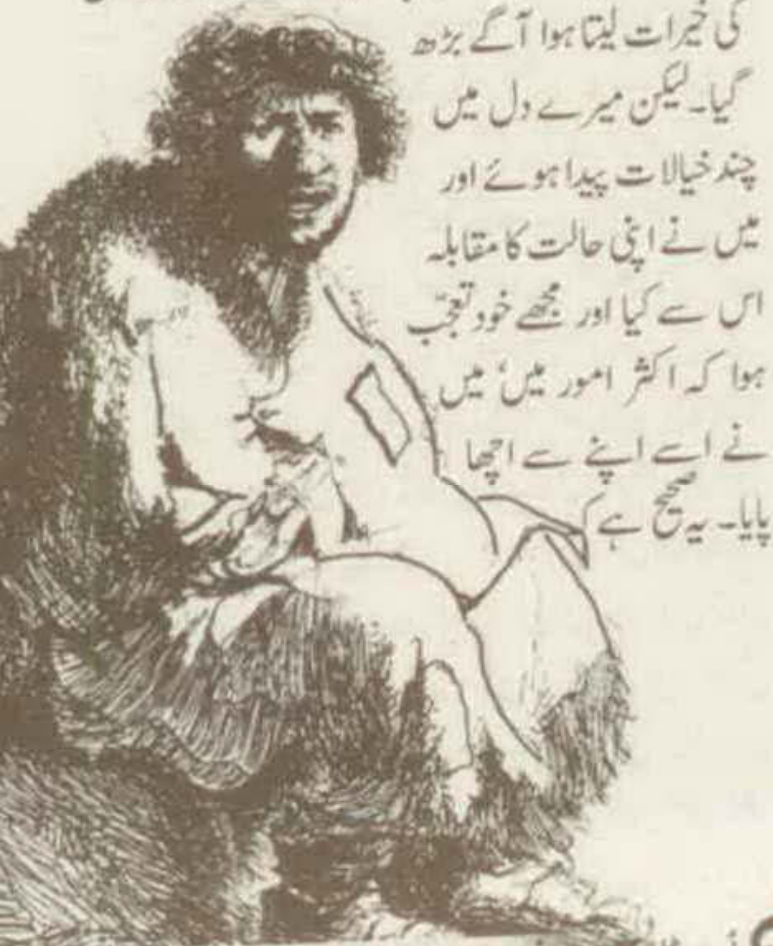 کی خیرات لیتا ہوا آگے بڑھ
گیا۔ لیکن میرے دل میں
چند خیالات پیدا ہوئے اور
میں نے اپنی حالت کا مقابلہ
اس سے کیا اور مجھے خود تعجّب
ہوا کہ اکثر امور میں، میں
نے اسے اپنے سے اچھا
پایا۔ یہ صحیح ہے کہ